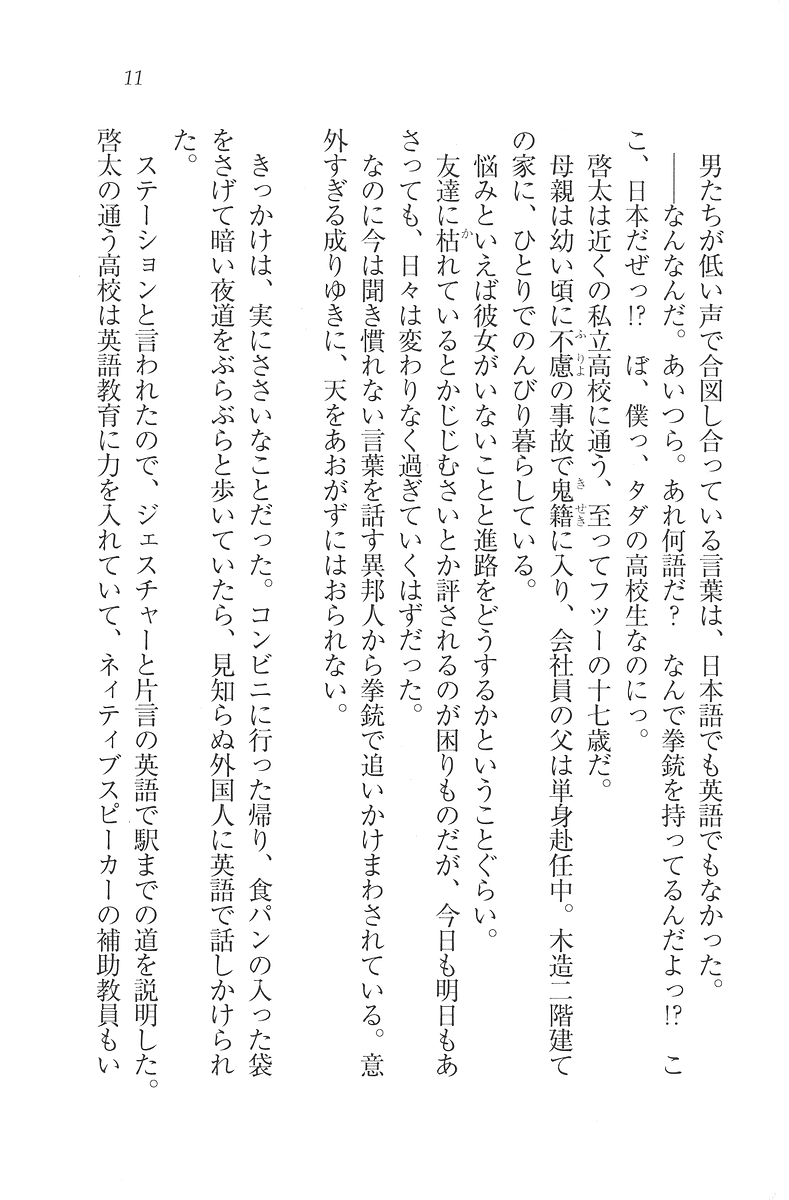 11
男たちが低い声で合図し合っている言葉は、日本語でも英語でもなかった。
――なんなんだ。あいつら。あれ何語だ?　なんで拳銃を持ってるんだよっ!?　こ
こ、日本だぜっ!?　ぼ、僕っ、タダの高校生なのにっ。
啓太は近くの私立高校に通う、至ってフツーの十七歳だ。
母親は幼い頃に不慮の事故で鬼籍に入り、会社員の父は単身赴任中。木造二階建て
の家に、ひとりでのんびり暮らしている。
悩みといえば彼女がいないことと進路をどうするかということぐらい。
友達に枯れているとかじじむさいとか評されるのが困りものだが、今日も明日もあ
さっても、日々は変わりなく過ぎていくはずだった。
なのに今は聞き慣れない言葉を話す異邦人から拳銃で追いかけまわされている。意
外すぎる成りゆきに、天をあおがずにはおられない。
きっかけは、実にささいなことだった。コンビニに行った帰り、食パンの入った袋
をさげて暗い夜道をぶらぶらと歩いていたら、見知らぬ外国人に英語で話しかけられ
た。
ステーションと言われたので、ジェスチャーと片言の英語で駅までの道を説明した。
啓太の通う高校は英語教育に力を入れていて、ネィティブスピーカーの補助教員もい